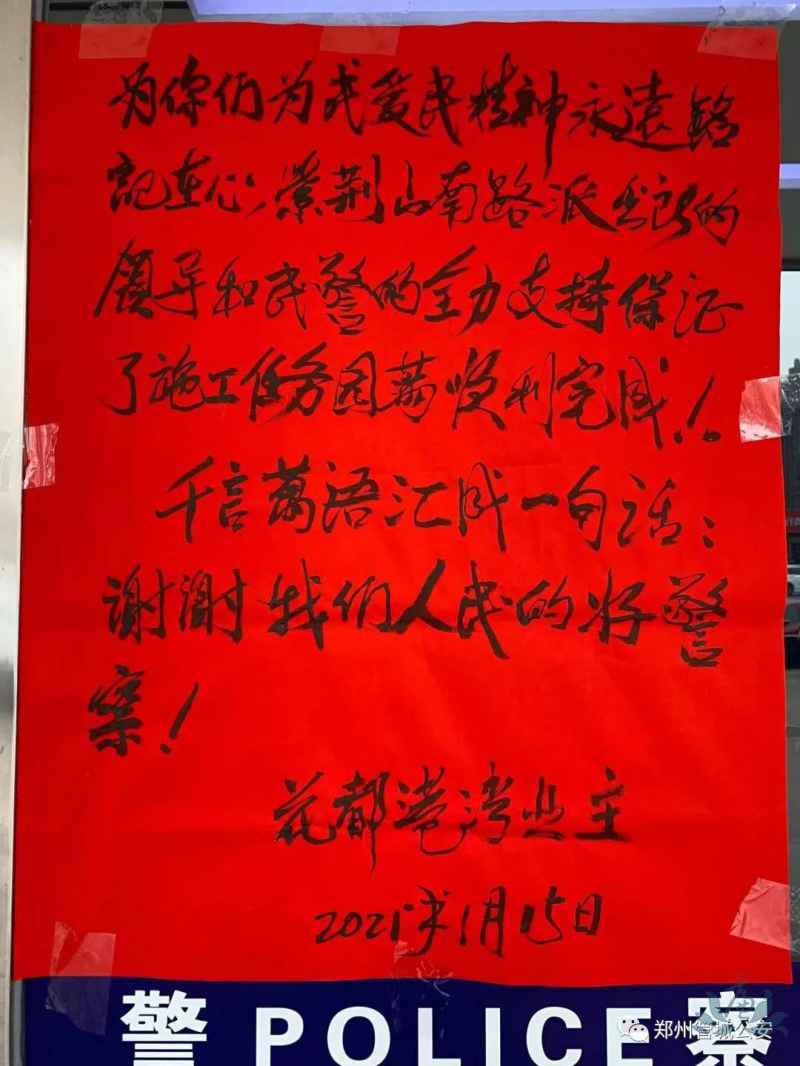 为你们为民爱民精神永遠铭
記在心,紫荆山南路派出所的
领导和民警的全力支持保证
了施工任务园满顺利完成!。
千言萬语汇成一句话:
谢谢我们人民的好警
察!
花都港湾业主
2021年1月15日
警 POLICE 察
郑州管城公安